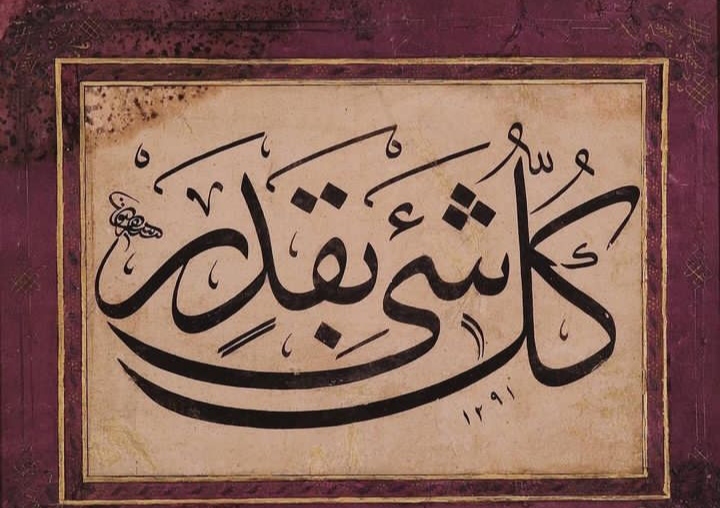 كُلُّ شَیْءٍ بِقَدَرٍ
١٢٩١